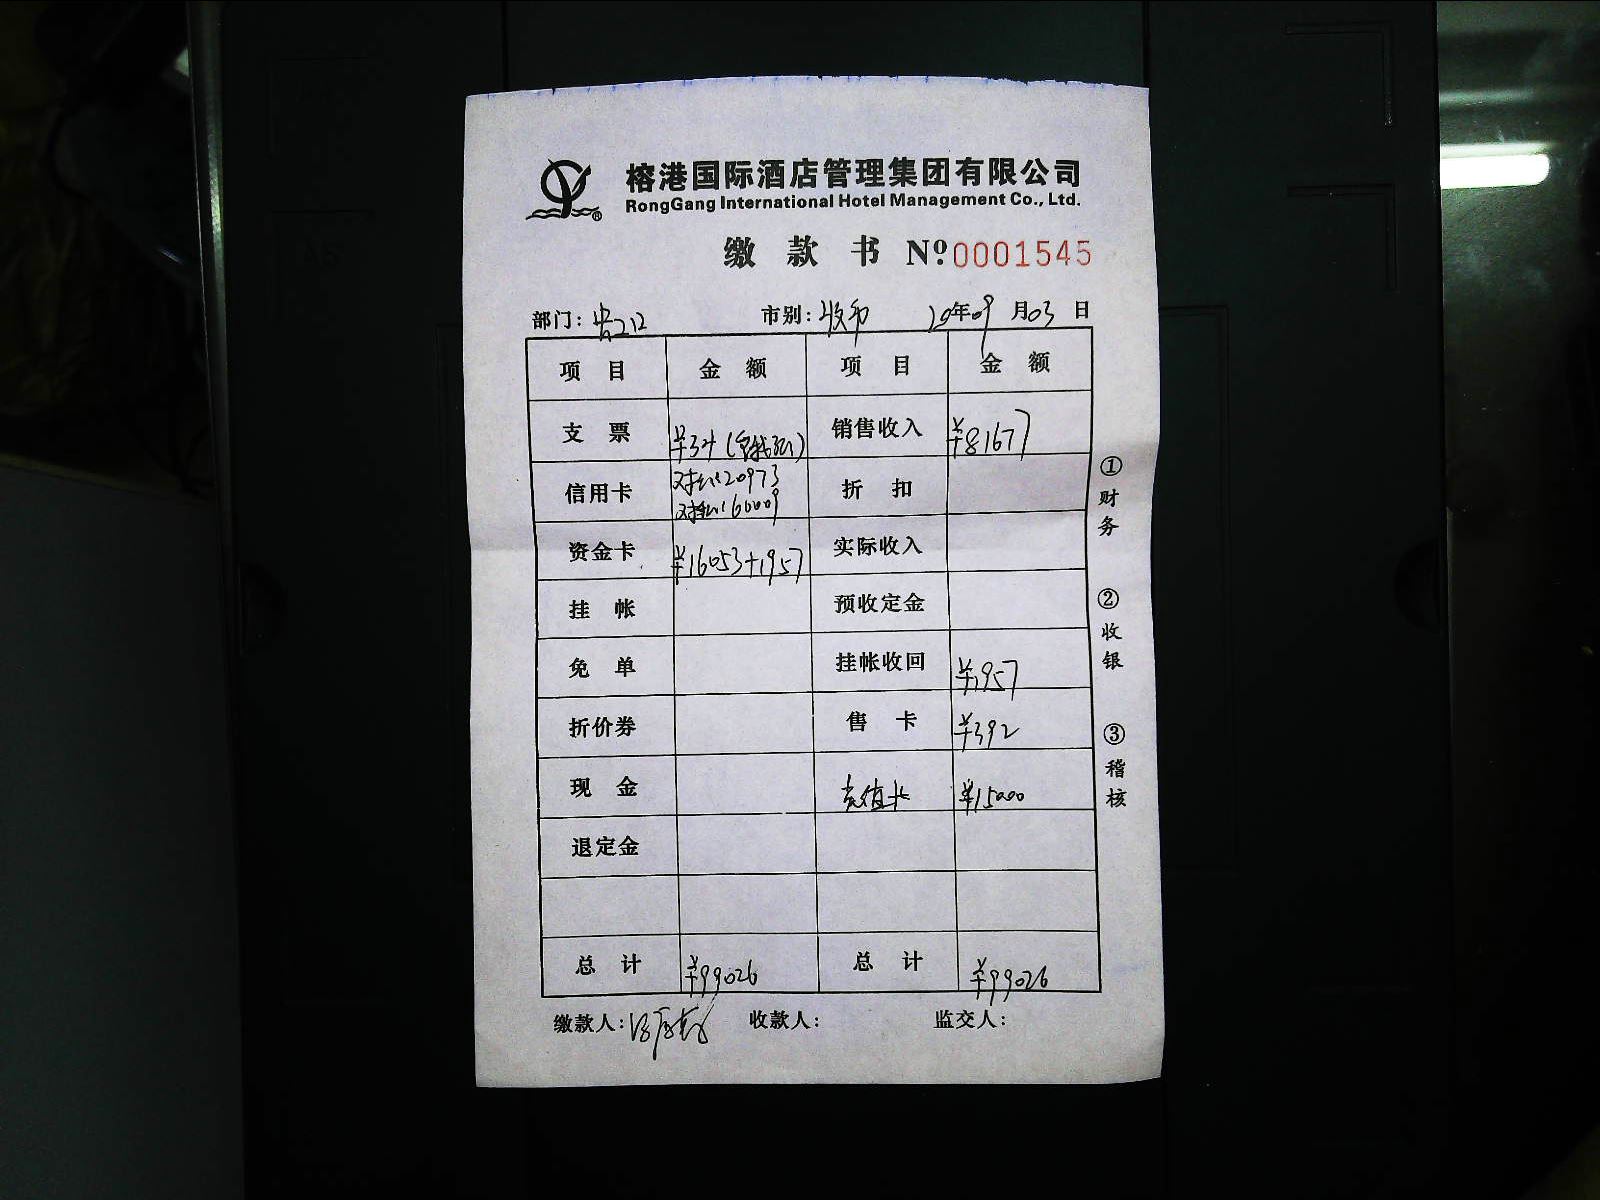 榕港国际酒店管理集团有限公司
RongGang International Hotel Management Co., Ltd.
缴 款 书 Nº:0001545
部门: 市别: 19年09月03日
项 目 金 额 项 目 金 额
支 票 ¥34 销售收入 ¥81677
信用卡 20973 折 扣
资金卡 ¥16053+1957 实际收入
挂 帐 预收定金
免 单 挂帐收回 ¥1957
折价券 售 卡 ¥392
现 金 充值卡 ¥15000
退定金
总 计 ¥99026 总 计 ¥99026
缴款人: 收款人: 监交人:
①财务
②收银
③稽核